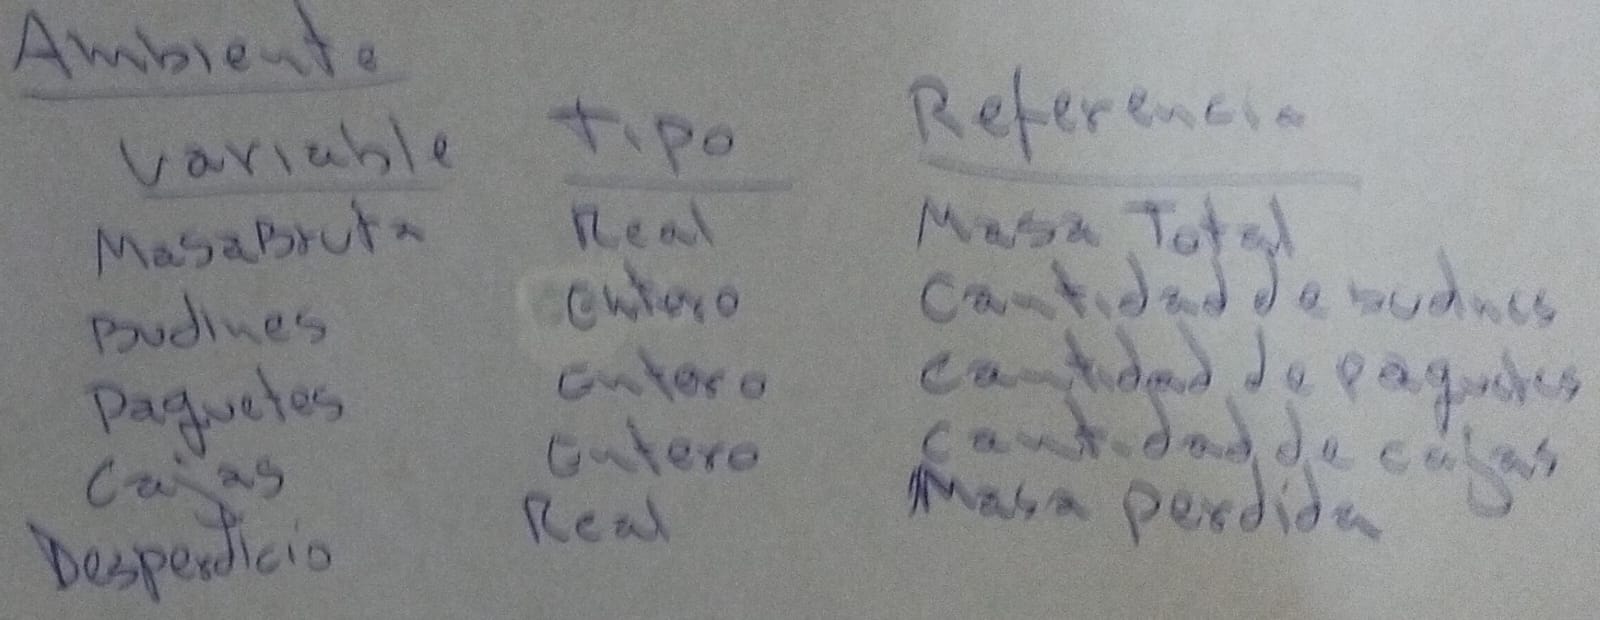 Ambiente
Variable Tipo Referencia
MasaBruta Real Masa Total
Budines Entero Cantidad de budines
Paquetes Entero Cantidad de paquetes
Cajas Entero Cantidad de cajas
Desperdicio Real Masa perdida